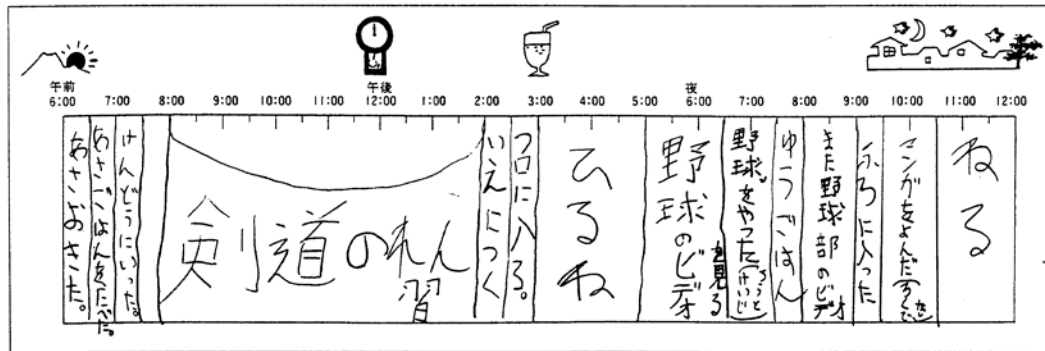 午前
午後
夜
6:00 7:00 8:00 9:00 10:00 11:00 12:00 1:00 2:00 3:00 4:00 5:00 6:00 7:00 8:00 9:00 10:00 11:00 12:00
あさおきた。
あさごはんをたべた。
けんどうにいった。
剣道のれん習
いえにつく
フロに入る。
ひるね
野球のビデオを見る
野球をやった
ゆうごはん
また野球部のビデオ
ふろに入った
マンガをよんだ
ねる